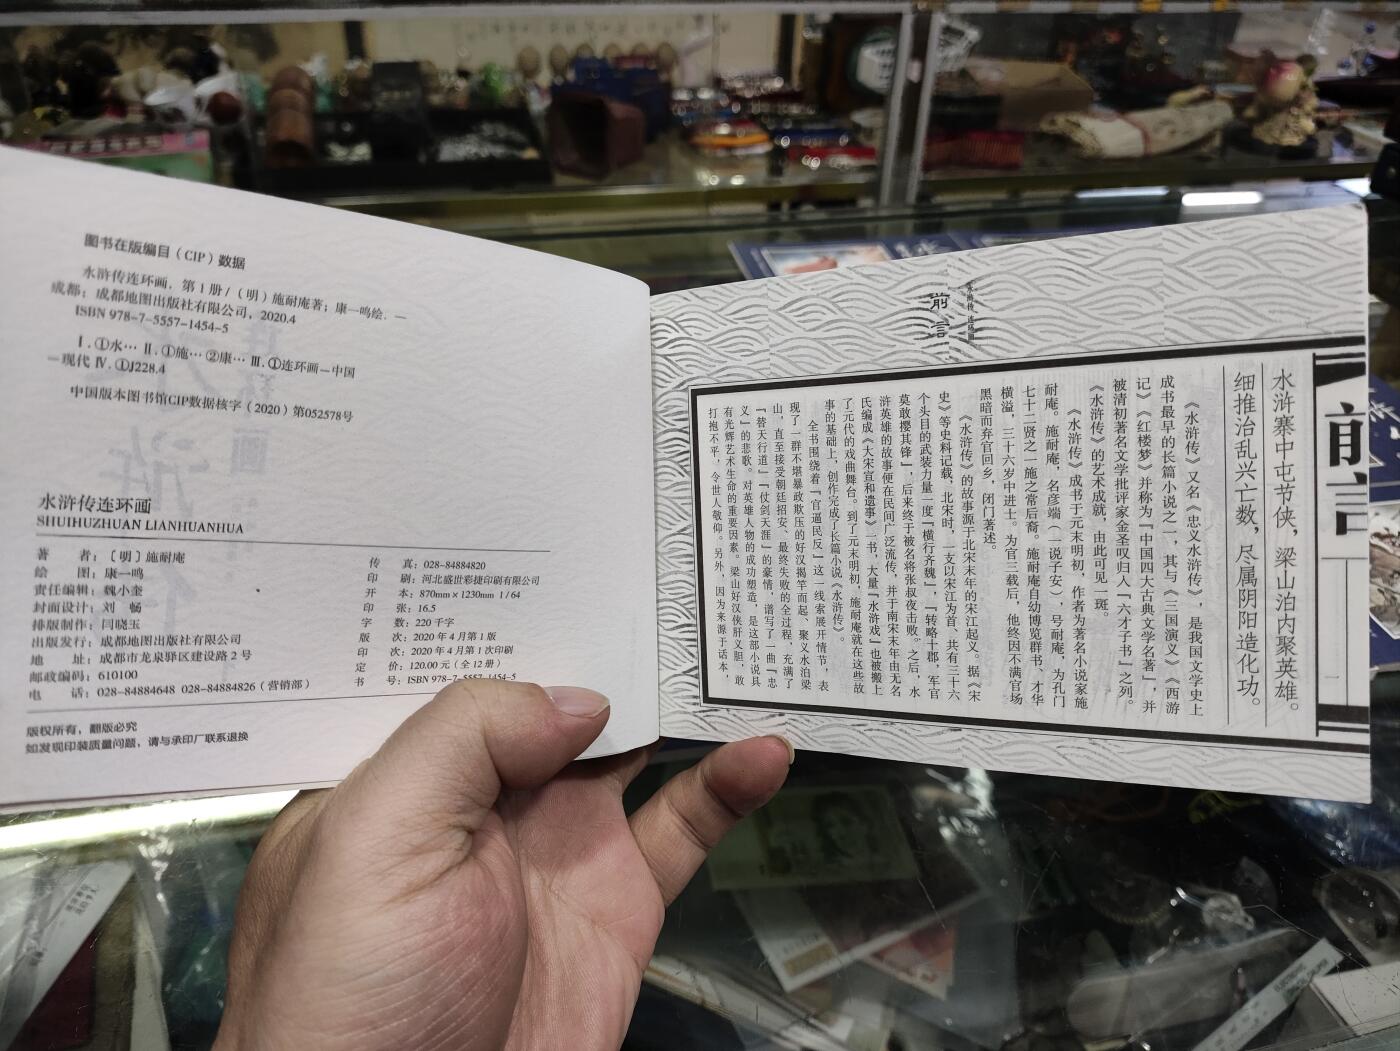 图书在版编目（CIP）数据
水浒传连环画．第1册/（明）施耐庵著；康一鸣绘．—
成都：成都地图出版社有限公司，2020.4
ISBN 978-7-5557-1454-5
Ⅰ.①水… Ⅱ.①施…②康… Ⅲ.①连环画—中国
—现代 Ⅳ.①J228.4
中国版本图书馆CIP数据核字（2020）第052578号
水浒传连环画
SHUIHUZHUAN LIANHUANHUA
著　　者：〔明〕施耐庵
绘　　图：康一鸣
责任编辑：魏小奎
封面设计：刘　畅
排版制作：闫晓玉
出版发行：成都地图出版社有限公司
地　　址：成都市龙泉驿区建设路2号
邮政编码：610100
电　　话：028-84884648 028-84884826（营销部）
传　　真：028-84884820
印　　刷：河北盛世彩捷印刷有限公司
开　　本：870mm×1230mm 1/64
印　　张：16.5
字　　数：220千字
版　　次：2020年4月第1版
印　　次：2020年4月第1次印刷
定　　价：120.00元（全12册）
书　　号：ISBN 978-7-5557-1454-5
版权所有，翻版必究
如发现印装质量问题，请与承印厂联系退换
水浒传 连环画
前言
前言
水浒寨中屯节侠，梁山泊内聚英雄。
细推治乱兴亡数，尽属阴阳造化功。
《水浒传》又名《忠义水浒传》，是我国文学史上
成书最早的长篇小说之一，其与《三国演义》《西游
记》《红楼梦》并称为『中国四大古典文学名著』，并
被清初著名文学批评家金圣叹归入『六才子书』之列。
《水浒传》的艺术成就，由此可见一斑。
《水浒传》成书于元末明初，作者为著名小说家施
耐庵。施耐庵，名彦端（一说子安），号耐庵，为孔门
七十二贤之一施之常后裔。施耐庵自幼博览群书、才华
横溢，三十六岁中进士。为官三载后，他终因不满官场
黑暗而弃官回乡，闭门著述。
《水浒传》的故事源于北宋末年的宋江起义。据《宋
史》等史料记载，北宋时，一支以宋江为首、共有三十六
个头目的武装力量一度『横行齐魏』，『转略十郡，官军
莫敢撄其锋』，后来终于被名将张叔夜击败。之后，水
浒英雄的故事便在民间广泛流传，并于南宋末年由无名
氏编成《大宋宣和遗事》一书，大量『水浒戏』也被搬上
了元代的戏曲舞台。到了元末明初，施耐庵就在这些故
事的基础上，创作完成了长篇小说《水浒传》。
全书围绕着『官逼民反』这一线索展开情节，表
现了一群不堪暴政欺压的好汉揭竿而起、聚义水泊梁
山，直至接受朝廷招安、最终失败的全过程，充满了
『替天行道』『仗剑天涯』的豪情，谱写了一曲『忠
义』的悲歌。对英雄人物的成功塑造，是这部小说具
有光辉艺术生命的重要因素。梁山好汉侠肝义胆，敢
打抱不平，令世人敬仰。另外，因为来源于话本，
一